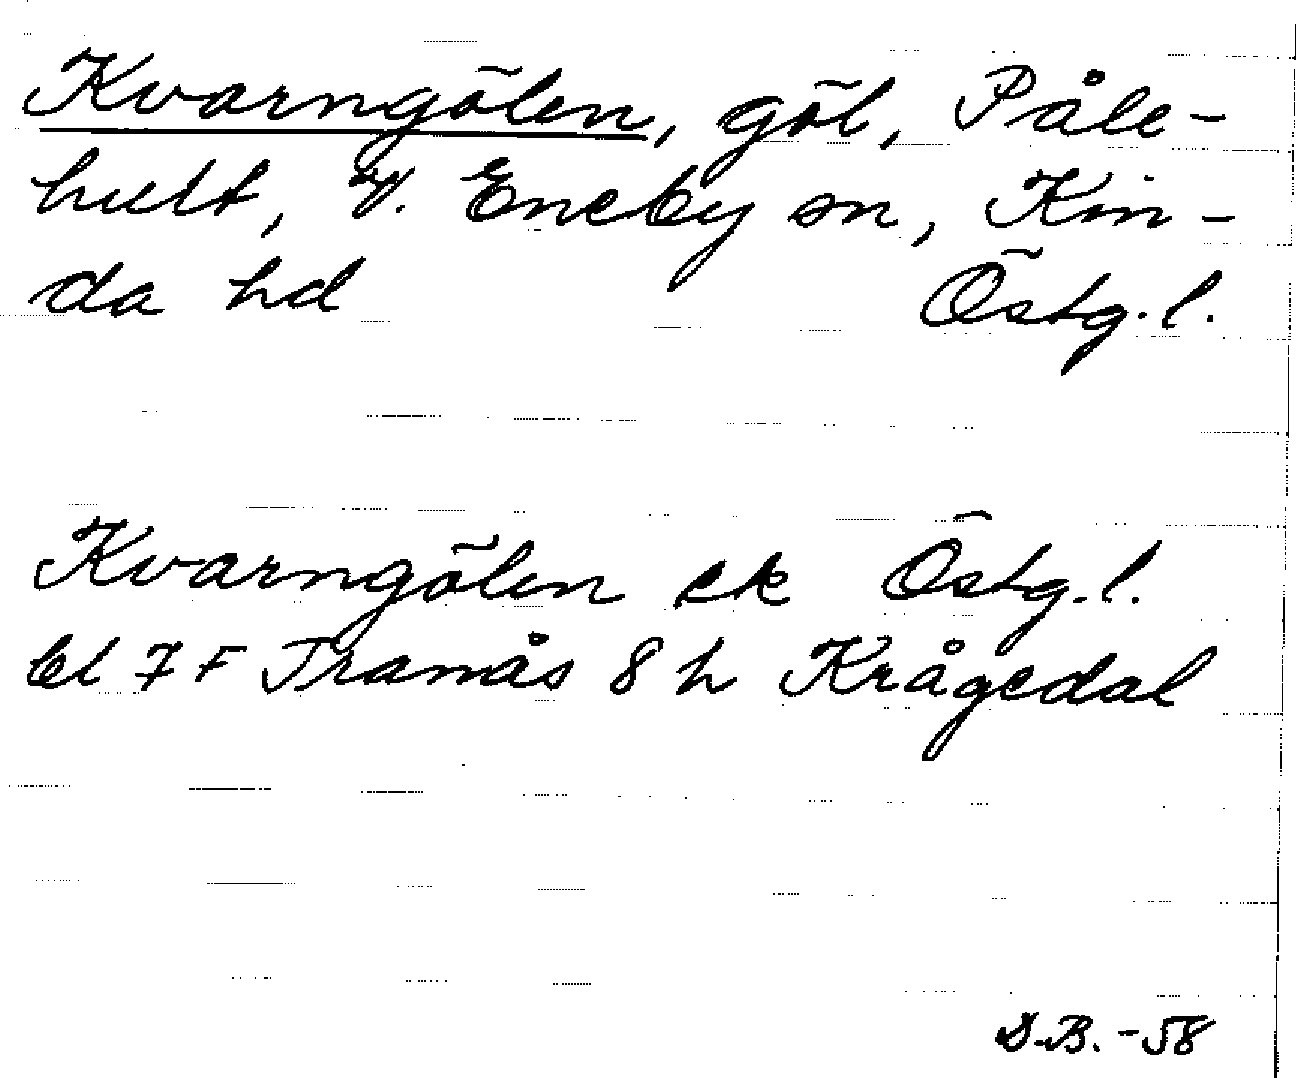 Kvarngölen, göl, Påle-
hult, V. Eneby sn, Kin-
da hd Östg.l.
Kvarngölen ek Östg.l.
bl 7 F Tranås 8 h Krågedal
D.B. -58